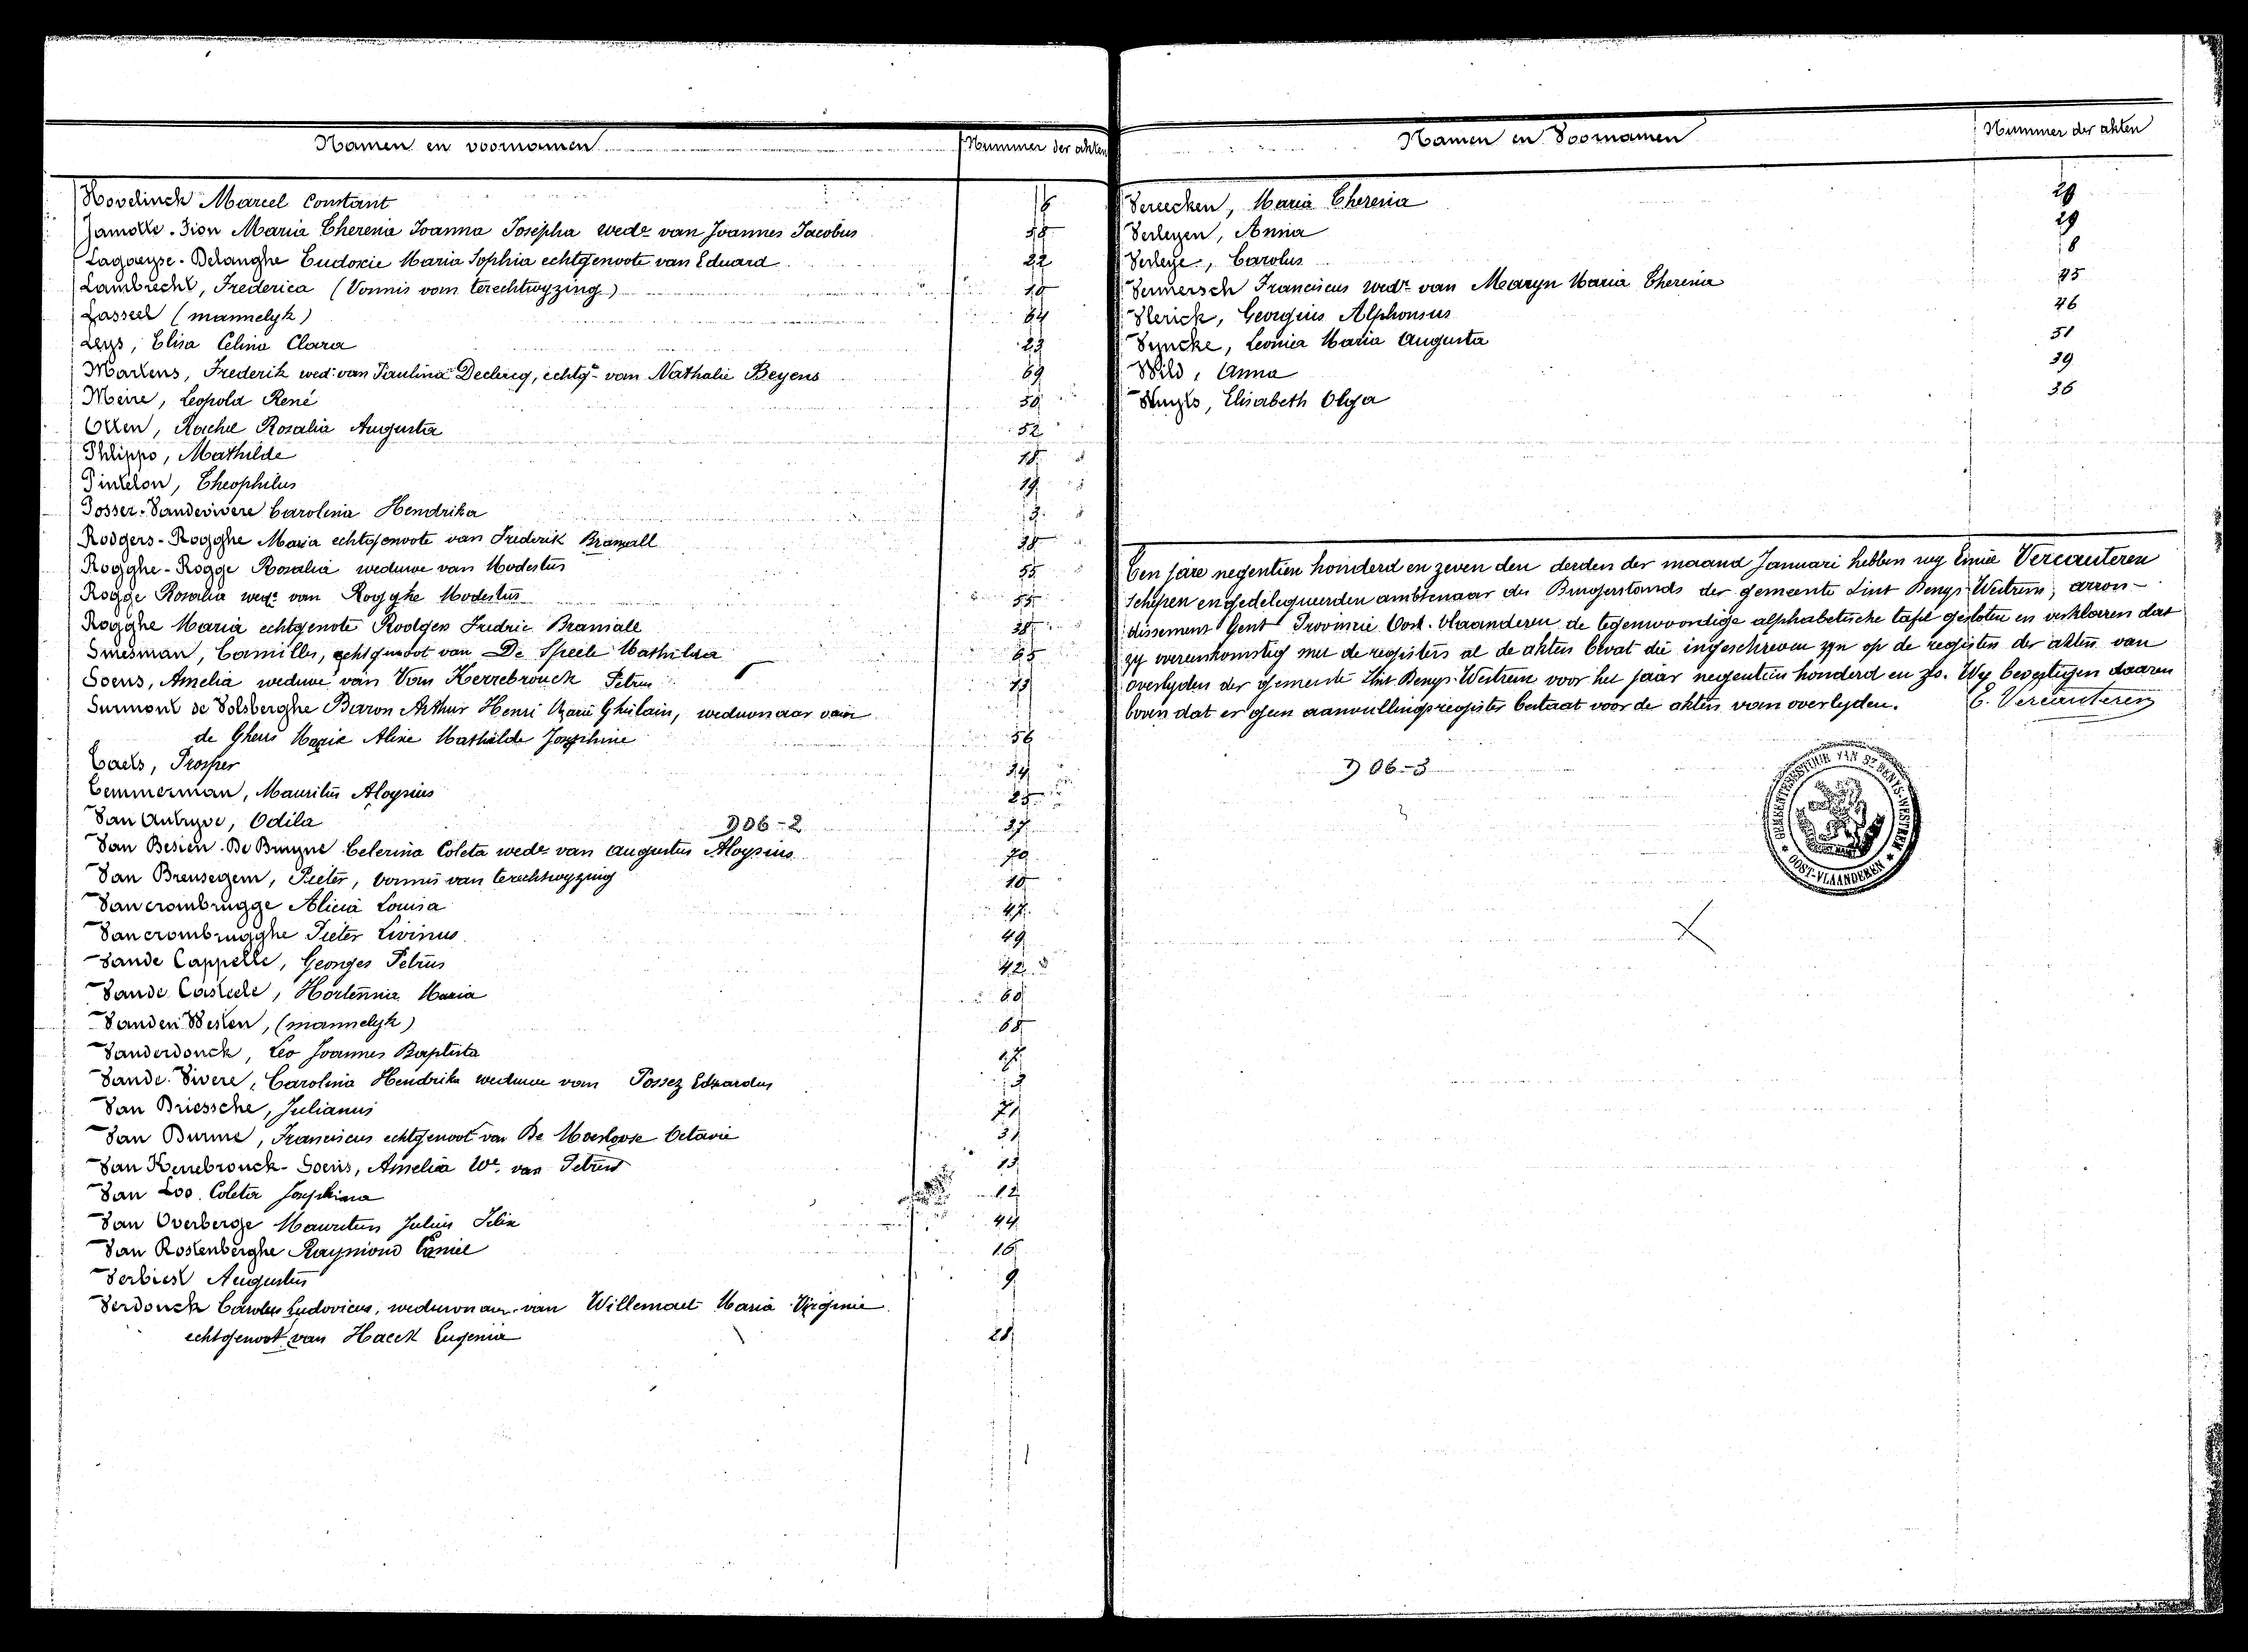 Namen en voornamen Nummer der akten
Hovelinck Marcel Constant
Jamotte-Zion Maria Theresia Joanna Josepha wede van Joannes Jacobus
Lagaeysse-Delanghe Eudoxie Maria Sophia echtgenoote van Eduard 22
Lambrecht, Frederica (Vonnis van terechtwyzing)
Lasseel (mannelyk) 64
Leys, Elisa Celina Clara 23
Martens, Frederik wed: van Paulina Declercq, echtgt van Nathalie Beyens 69
Meire, Leopold René 50
Otten, Rachel Rosalia Augusta 52
Phlippo, Mathilde
Pintelon, Theophilus 19
Posser-Vandevivere Carolina Hendrika 3
Rodgers-Rogghe Maria echtgenoote van Frederik Bramall 38
Rogghe-Rogge Rosalia weduwe van Modestus 55
Rogge Rosalia wede van Rogghe Modestus 55
Rogghe Maria echtgenote Rodgers Fredric Bramall 38
Smesman, Camilles, echtgenoot van De Speele Mathilda 65
Soens, Amelia weduwe van Van Kerrebrouck Petrus 13
Surmont de Volsberghe Baron Arthur Henri Marie Ghislain, weduwnaar van
de Gheus Marie Aline Mathilde Josephine 56
Taets, Prosper 34
Temmerman, Mauritus Aloysius 25
Van Autryve, Odila D06-2 37
Van Besien-De Bruyne Celerina Coleta wede van Augustus Aloysius 70
Van Breusegem, Pieter, vonnis van terechtwyzing 10
Vancrombrugge Alicia Louisa 47
Vancrombrugghe Pieter Livinus 49
Vande Cappelle, Georges Petrus 42
Vande Casteele, Hortensia Maria 60
Vanden Westen, (mannelyk) 68
Vanderdonck, Leo Joannes Baptista 27
Vande Vivere, Carolina Hendrika weduwe van Possez Eduardus 3
Van Driessche, Julianus 71
Van Durme, Franciscus echtgenoot van De Moerloose Octavie 31
Van Kerrebrouck-Soens, Amelia We. van Petrus 13
Van Loo Coleta Josephina 12
Van Overberge Mauritus Julius Felix 44
Van Rostenberghe Raymond Camiel 16
Verbiest Augustus 9
Verdonck Carolus Ludovicus, weduwnaar van Willemaet Maria Virginie
echtgenoot van Haeck Eugenia 28
Namen en Voornamen Nummer der akten
Vereecken, Maria Theresia
Verleyen, Anna 29
Verleye, Carolus 8
Vermersch Franciscus wedr van Maryn Maria Theresia 45
Vlerick, Georgius Alphonsus 46
Vyncke, Leonia Maria Augusta 51
Wild, Anna 39
Wuyts, Elisabeth Olga 36
Ten jare negentien honderd en zeven den derden der maand Januari hebben wy Emie Vercauteren
Schepen en gedelegueerden ambtenaar des Burgerstands der gemeente Sint Denys-Westrem, arron-
dissement Gent Provincie Oost-Vlaanderen de tegenwoordige alphabetische tafel gesloten en verklaren dat
zy overeenkomstig met de registers al de akten bevat die ingeschreven zyn op de registers der akten van
overlyden der gemeente Sint Denys-Westrem voor het jaar negentien honderd en zes. Wy bevestigen daaren
boven dat er geen aanvullingsregister bestaat voor de akten van overlyden. E. Vercauteren
D06-3
GEMEENTEBESTUUR VAN ST DENYS-WESTREM
* OOST-VLAANDEREN *